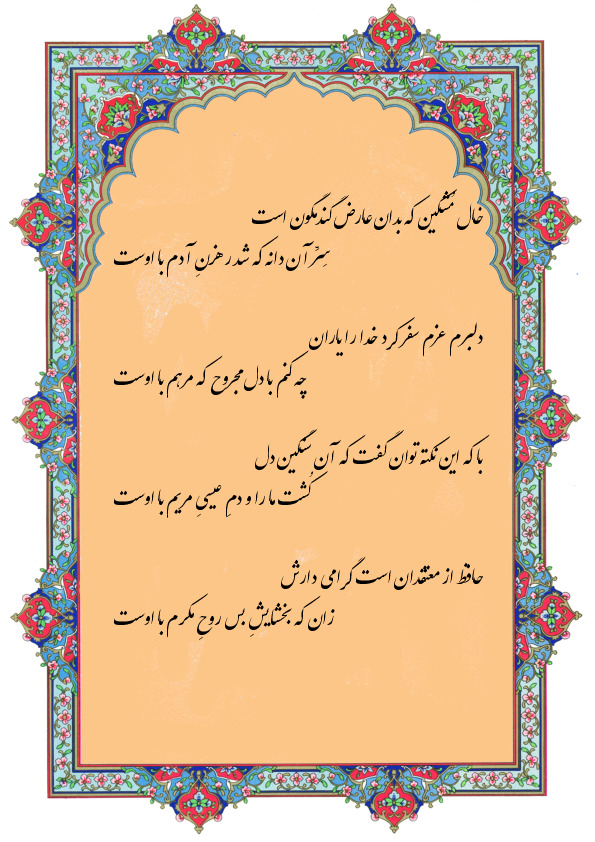 خال مُشکین که بدان عارض گندمگون است
سِرّ آن دانه که شد رهزنِ آدم با اوست
دلبرم عزم سفر کرد خدا را یاران
چه کنم با دل مجروح که مرهم با اوست
با که این نکته توان گفت که آن سنگین دل
کشت ما را و دمِ عیسیِ مریم با اوست
حافظ از معتقدان است گرامی دارش
زان که بخشایشِ بس روحِ مکرم با اوست